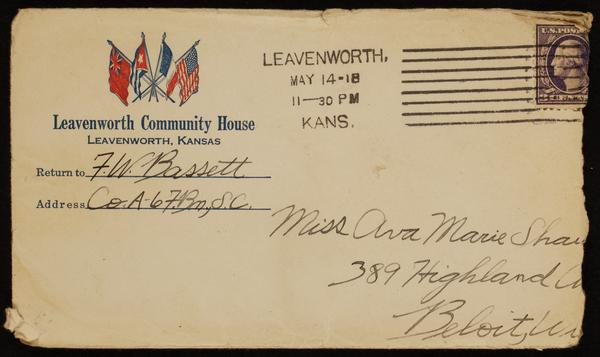 Leavenworth Community House
LEAVENWORTH, KANSAS
Return to F.W. Bassett
Address Co. A-6 F. Bn, S.C.
LEAVENWORTH,
MAY 14-18
11—30 PM
KANS.
U.S. POSTAGE
Miss Ava Marie Shaw
389 Highland
Beloit,